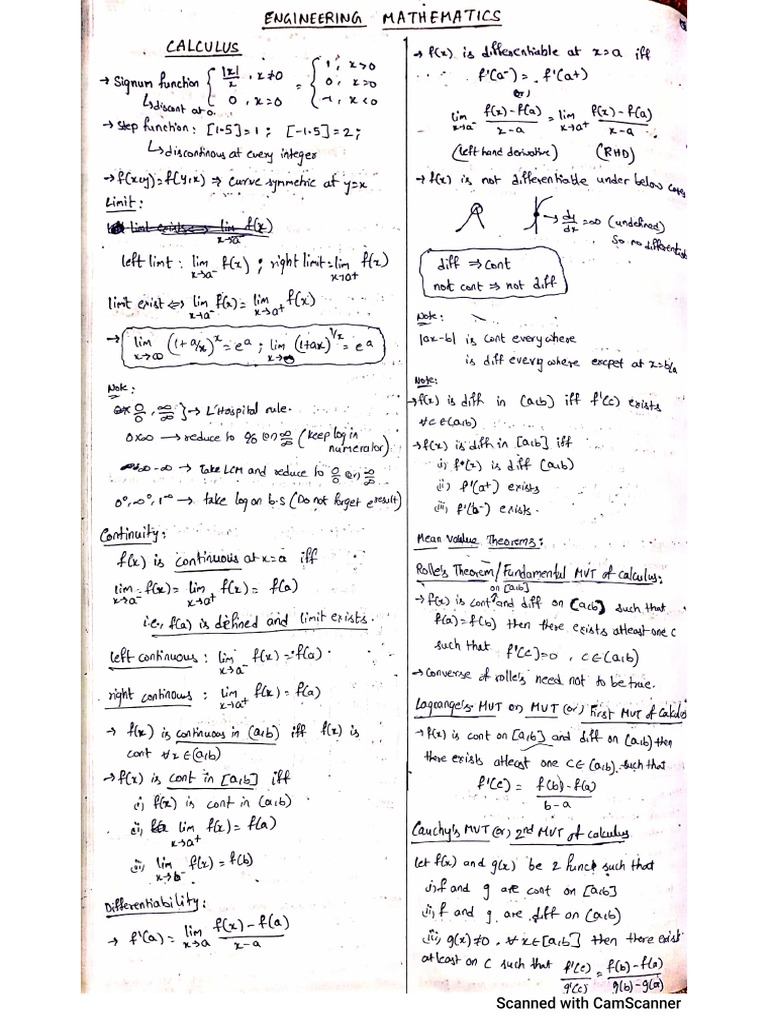 ENGINEERING MATHEMATICS
CALCULUS
→ Signum function { |x|/x , x≠0 = { 1, x>0
0 , x=0 0, x=0
-1, x<0
↳ discont at 0.
→ Step function: [1.5]=1; [-1.5]=2;
↳ discontinous at every integer
→ f(x,y)=f(y,x) ⇒ curve symmetric at y=x
Limit:
left limt : lim x→a⁻ f(x) ; right limit = lim x→a+ f(x)
limit exist ⇔ lim x→a⁻ f(x) = lim x→a+ f(x)
→ lim x→∞ (1+a/x)^x = e^a ; lim (1+ax)^1/x = e^a
Note:
0/0 , ∞/∞ } → L'Hospital rule.
0x∞ → reduce to 0/0 (or) ∞/∞ (keep log in
numerator)
∞-∞ → Take LCM and reduce to 0/0 (or) ∞/∞
0°, ∞°, 1^∞ → take log on b.s (Do not forget e^result)
Continuity:
f(x) is continuous at x=a iff
lim x→a⁻ f(x) = lim x→a+ f(x) = f(a)
i.e., f(a) is defined and limit exists.
left continuous : lim x→a⁻ f(x) = f(a)
right continous : lim x→a+ f(x) = f(a)
→ f(x) is continuous in (a,b) iff f(x) is
cont ∀x∈(a,b)
→ f(x) is cont in [a,b] iff
i) f(x) is cont in (a,b)
ii) lim x→a+ f(x) = f(a)
iii) lim x→b⁻ f(x) = f(b)
Differentiability:
→ f'(a) = lim x→a f(x)-f(a)/x-a
→ f(x) is differentiable at x=a iff
f'(a⁻) = f'(a+)
(or)
lim x→a⁻ f(x)-f(a)/x-a = lim x→a+ f(x)-f(a)/x-a
(left hand derivative) (RHD)
→ f(x) is not differentiable under below cases
→ dy/dx = ∞ (undefined)
So no differentiable
diff ⇒ cont
not cont ⇒ not diff
Note:
|ax-b| is cont everywhere
is diff everywhere excpet at x=b/a
Note:
→ f(x) is diff in (a,b) iff f'(c) exists
∀c∈(a,b)
→ f(x) is diff in [a,b] iff
i) f(x) is diff (a,b)
ii) f'(a+) exists
iii) f'(b⁻) exists.
Mean Value Theorems:
Rolle's Theorem/Fundamental MVT of calculus:
on [a,b]
→ f(x) is cont and diff on (a,b) such that
f(a)=f(b) then there exists atleast one c
such that f'(c)=0 , c∈(a,b)
→ Converse of rolle's need not to be true.
Lagrange's MVT or, MVT (or) First MVT of Calculus
→ f(x) is cont on [a,b] and diff on (a,b) then
there exists atleast one c∈(a,b) such that
f'(c) = f(b)-f(a)/b-a
Cauchy's MVT (or) 2nd MVT of calculus
let f(x) and g(x) be 2 func such that
i) f and g are cont on [a,b]
ii) f and g are diff on (a,b)
iii) g(x)≠0, ∀x∈[a,b] then there exist
atleast on c such that f'(c)/g'(c) = f(b)-f(a)/g(b)-g(a)
Scanned with CamScanner